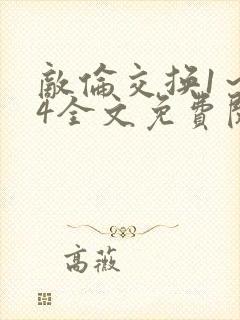 敵倫交換1～
4全文免費閱
高薇